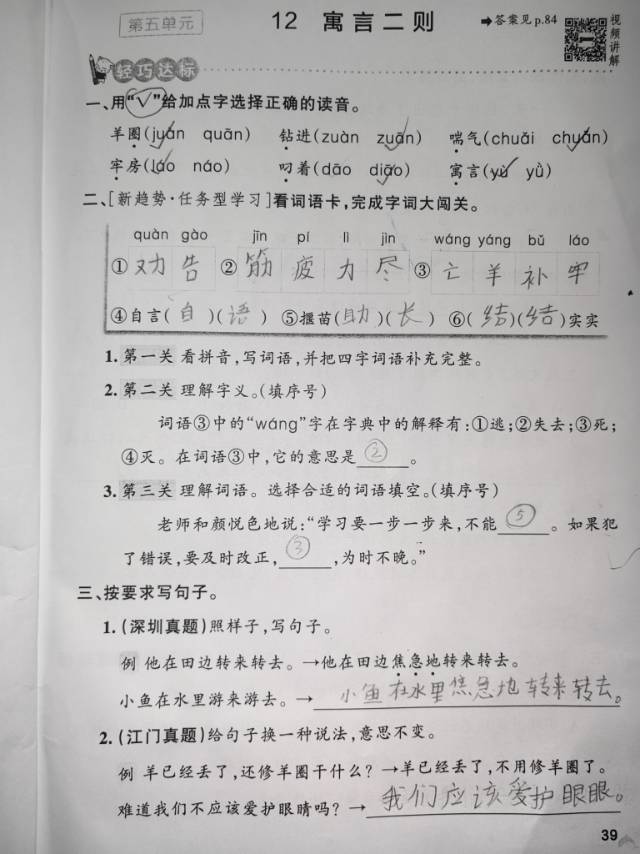 第五单元
12 寓言二则
➡答案见p.84
视频讲解
轻巧达标
一、用“√”给加点字选择正确的读音。
羊圈(juàn quān) 钻进(zuàn zuān) 喘气(chuǎi chuǎn)
牢房(láo náo) 叼着(dāo diāo) 寓言(yù yǜ)
二、[新趋势·任务型学习]看词语卡,完成字词大闯关。
quàn gào jīn pí lì jìn wáng yáng bǔ láo
①劝告 ②筋疲力尽 ③亡羊补牢
④自言(自)(语) ⑤揠苗(助)(长) ⑥(结)(结)实实
1. 第一关 看拼音,写词语,并把四字词语补充完整。
2. 第二关 理解字义。(填序号)
词语③中的“wáng”字在字典中的解释有:①逃;②失去;③死;
④灭。在词语③中,它的意思是②。
3. 第三关 理解词语。选择合适的词语填空。(填序号)
老师和颜悦色地说:“学习要一步一步来,不能⑤。如果犯
了错误,要及时改正,③,为时不晚。”
三、按要求写句子。
1. (深圳真题)照样子,写句子。
例 他在田边转来转去。→他在田边焦急地转来转去。
小鱼在水里游来游去。→小鱼在水里悠急地转来转去。
2. (江门真题)给句子换一种说法,意思不变。
例 羊已经丢了,还修羊圈干什么?→羊已经丢了,不用修羊圈了。
难道我们不应该爱护眼睛吗?→我们应该爱护眼眼。
39